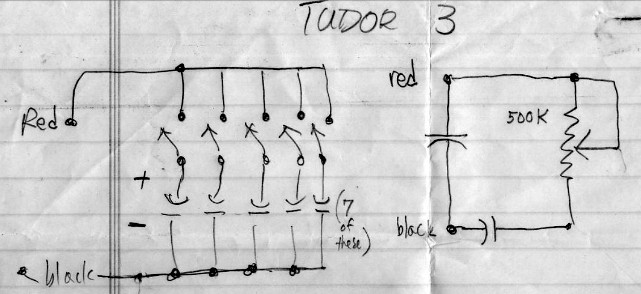 TUDOR 3
red
500K
Red
+
-
(7
of
these)
black
black